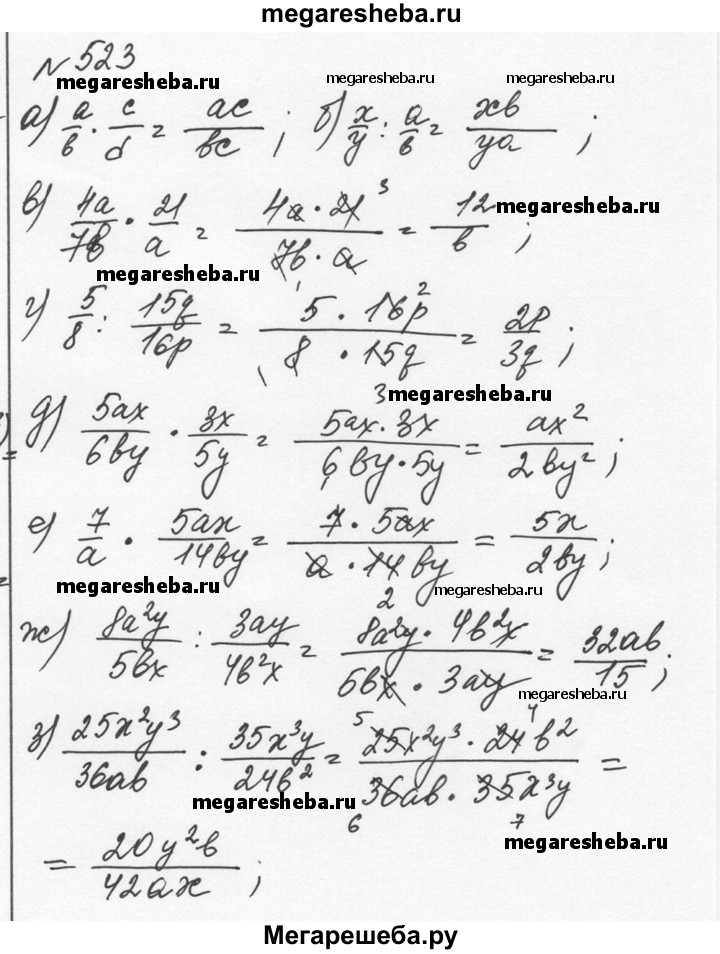 megaresheba.ru
№ 523
megaresheba.ru megaresheba.ru megaresheba.ru
а) a/b · c/d = ac/bc ; б) x/y : a/b = xb/ya ;
в) 4a/7b · 21/a = 4a · 21 3/7b · a = 12/b ;
megaresheba.ru
megaresheba.ru
г) 5/8 : 15q/16p = 5 · 16p 2/1 8 · 15q 3 = 2p/3q ;
megaresheba.ru
д) 5ax/6by · 3x/5y = 5ax · 3x/6by · 5y = ax²/2by² ;
е) 7/a · 5ax/14by = 7 · 5ax/a · 14by 2 = 5x/2by ;
megaresheba.ru megaresheba.ru
ж) 8a²y/5bx : 3ay/4b²x = 8a²y · 4b²x/5bx · 3ay = 32ab/15 ;
megaresheba.ru
з) 25x²y³/36ab : 35x³y/24b² = 5 25x²y³ · 24 4 b²/36 6 ab · 35 7 x³y =
megaresheba.ru
megaresheba.ru
= 20y²b/42ax ;
Мегарешеба.ру